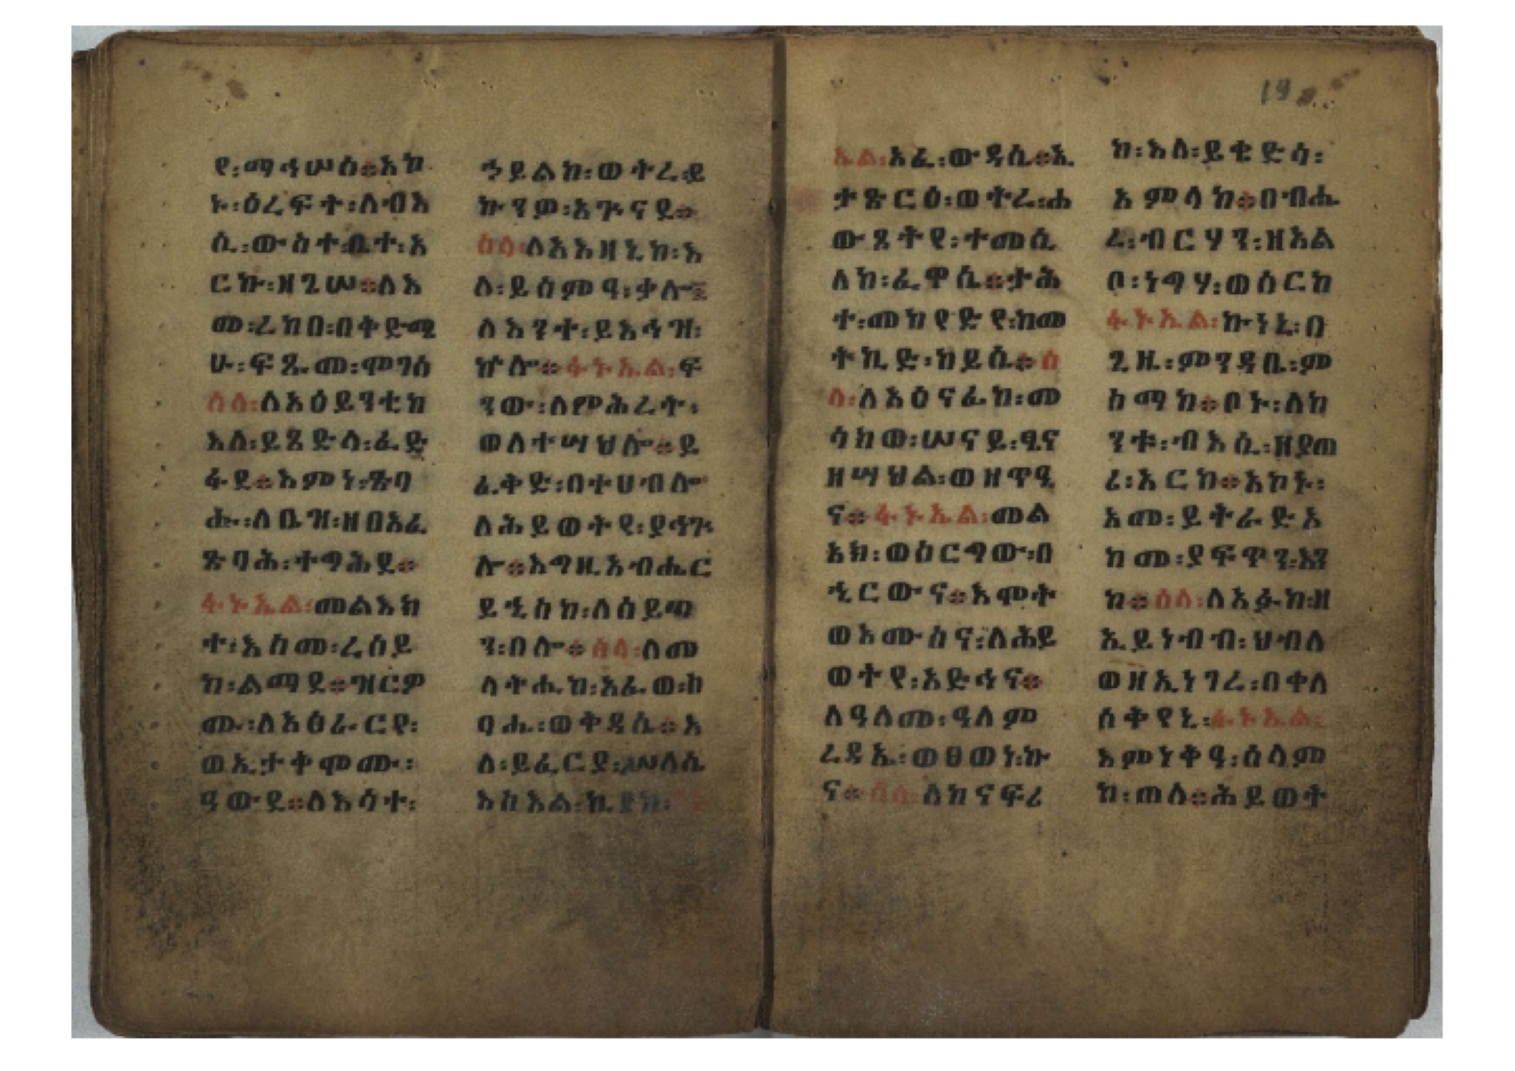 የ፡ማኅሠሰ፨አኮ
ኑ፡ዕረፍተ፡ለብእ
ሲ፡ውስተ፡ቤተ፡አ
ርኩ፡ዘጌሠ፨ለእ
መ፡ረከበ፡በቅድሜ
ሁ፡ፍጹመ፡ሞገሰ
ሰላ፡ለአዕይንቲከ
እለ፡ይጼድላ፡ፈድ
ፋደ፨እምነ፡ጽባ
ሑ፡ለቤዝ፡ዘበአፈ
ጽባሕ፡ተግሕደ፨
ፋኑኤል፡መልአክ
ተ፡እስመ፡ረሰይ
ከ፡ልማደ፨ዝርዎ
ሙ፡ለአዕራርየ፡
ወኢታቀሞሙ፡
ዓውደ፨ለእሳተ፡
ኅይልከ፡ወትረ፡ይ
ኩንዎ፡እጕናደ፨
ሰላ፡ለአእዛኒከ፡እ
ለ፡ይሰምዓ፡ቃሎ፤
ለእንተ፡ይእኅዝ፡
ኵሎ፨ፋኑኤል፡ፍ
ንው፡ለምሕረት፡
ወለተሣህሎ፨ይ
ፈቅድ፡በተሀብሎ
ለሕይወትየ፡ያኅጕ
ሎ፨እግዚአብሔር
ይኂስከ፡ለሰይጣ
ን፡በሎ፨ሰላ፡ለመ
ላትሒከ፡አፈወ፡ከ
ባሒ፡ወቅዳሴ፨እ
ለ፡ይፈርያ፡ሥለሴ
እስእል፡ኪያከ፡
ኤል፡አፈ፡ውዳሴ፨ኢ
ታጽርዕ፡ወትረ፡ሐ
ውጾትየ፡ተመሲ
ለከ፡ፈዋሴ፨ታሕ
ተ፡መከየድየ፡ከመ
ትኪድ፡ከይሴ፨ሰ
ላ፡ለአዕናፊከ፡መ
ሳክወ፡ሠናይ፡ዒና
ዘሣህል፡ወዘጥዒ
ና፨ፋኑኤል፡መል
አክ፡ወሰርግው፡በ
ኂርውና፨እሞት
ወእሙስና፡ለሕይ
ወትየ፡አድኅና፨
ለዓለመ፡ዓለም
ረዳኤ፡ወፀወነ፡ኩ
ና፨ሰላ፡ለከናፍሪ
ከ፡እለ፡ይቄድሳ፡
አምላከ፨በብሔ
ረ፡ብርሃን፡ዘአል
ቦ፡ነግሃ፡ወሰርከ
ፋኑኤል፡ኩነኒ፡በ
ጊዜ፡ምንዳቤ፡ም
ስማከ፨ቦኑ፡ለከ
ንቱ፡ብእሲ፡ዘያጠ
ሪ፡አርከ፨አኮኑ፡
አመ፡ይትራድአ
ከመ፡ያፍጥን፡እን
ከ፨ሰላ፡ለአፉከ፡ዘ
ኢይነብብ፡ህብለ
ወዘኢነገረ፡በቀለ
ሰቅየኒ፡ፋኑኤል፡
እምነቅዓ፡ሰላም
ከ፡ጠለ፨ሕይወት